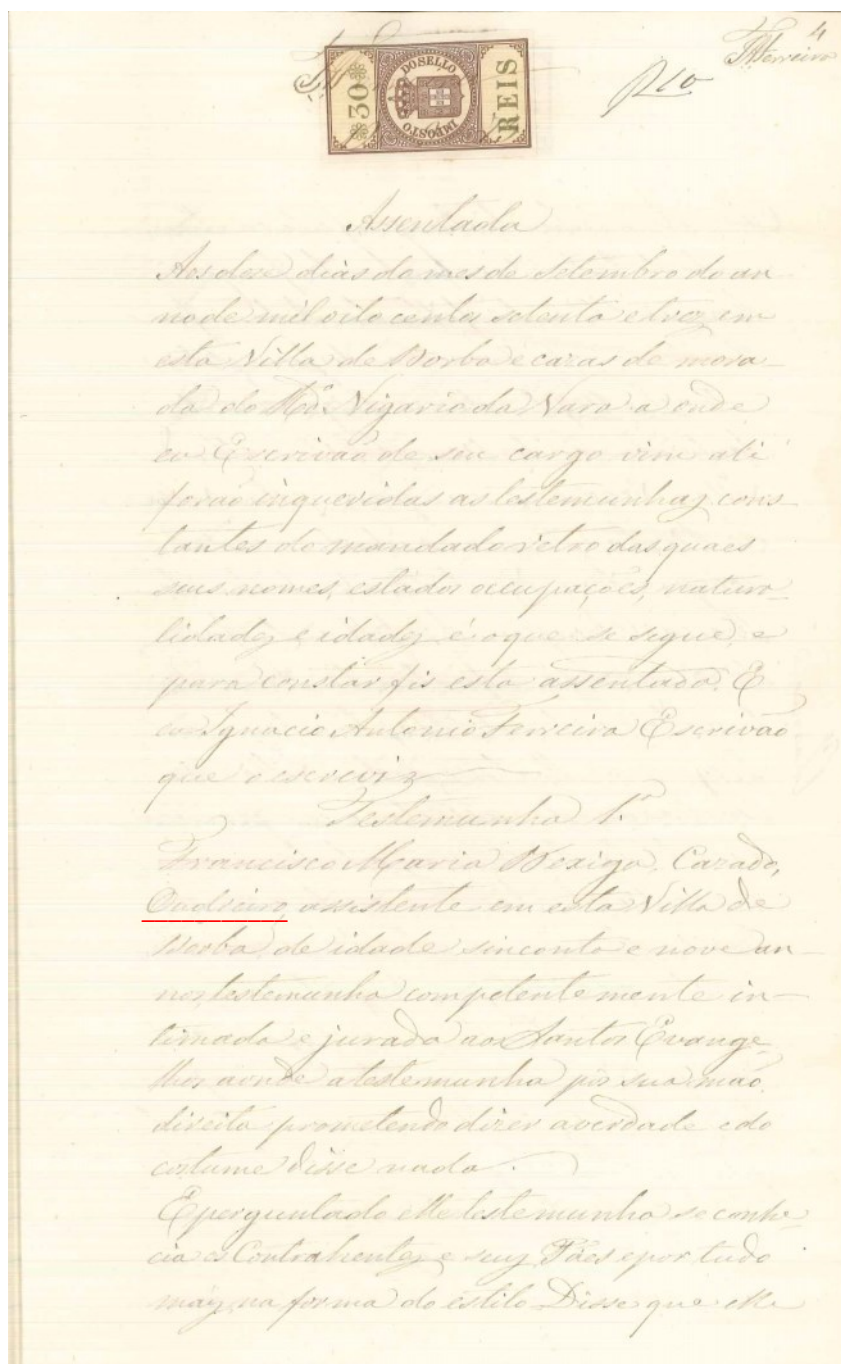 4
Ferreira
30 IMPOSTO DO SELLO REIS
Assentada
Aos dose dias do mes de Setembro do an
no de mil oito centos setenta e trez em
esta Villa de Borba e cazas de mora
da do Rdo. Vigario da Vara a onde
eu Escrivaõ de seu cargo vim ali
foraõ inqueridas as testemunhaz cons
tantes do mandado retro das quaes
seus nomes, estados occupações, natura
lidadez e idadez é o que se segue, e
para constar fis esta assentada. E
eu Ignacio Antonio Ferreira Escrivaõ
que o escreviz
Testemunha 1.ª
Francisco Maria Bexiga, Cazado,
assistente em esta Villa de
Borba, de idade sinconta e nove an
nos, testemunha competentemente in
timada e jurada aos Santos Evange
lhos aonde a testemunha pôs sua maõ
direita prometendo dizer a verdade e do
costume disse nada.
E perguntado elle testemunha se conhe
cia os Contrahentez e seuz Pães e por tudo
maiz na forma do estilo Disse que elle